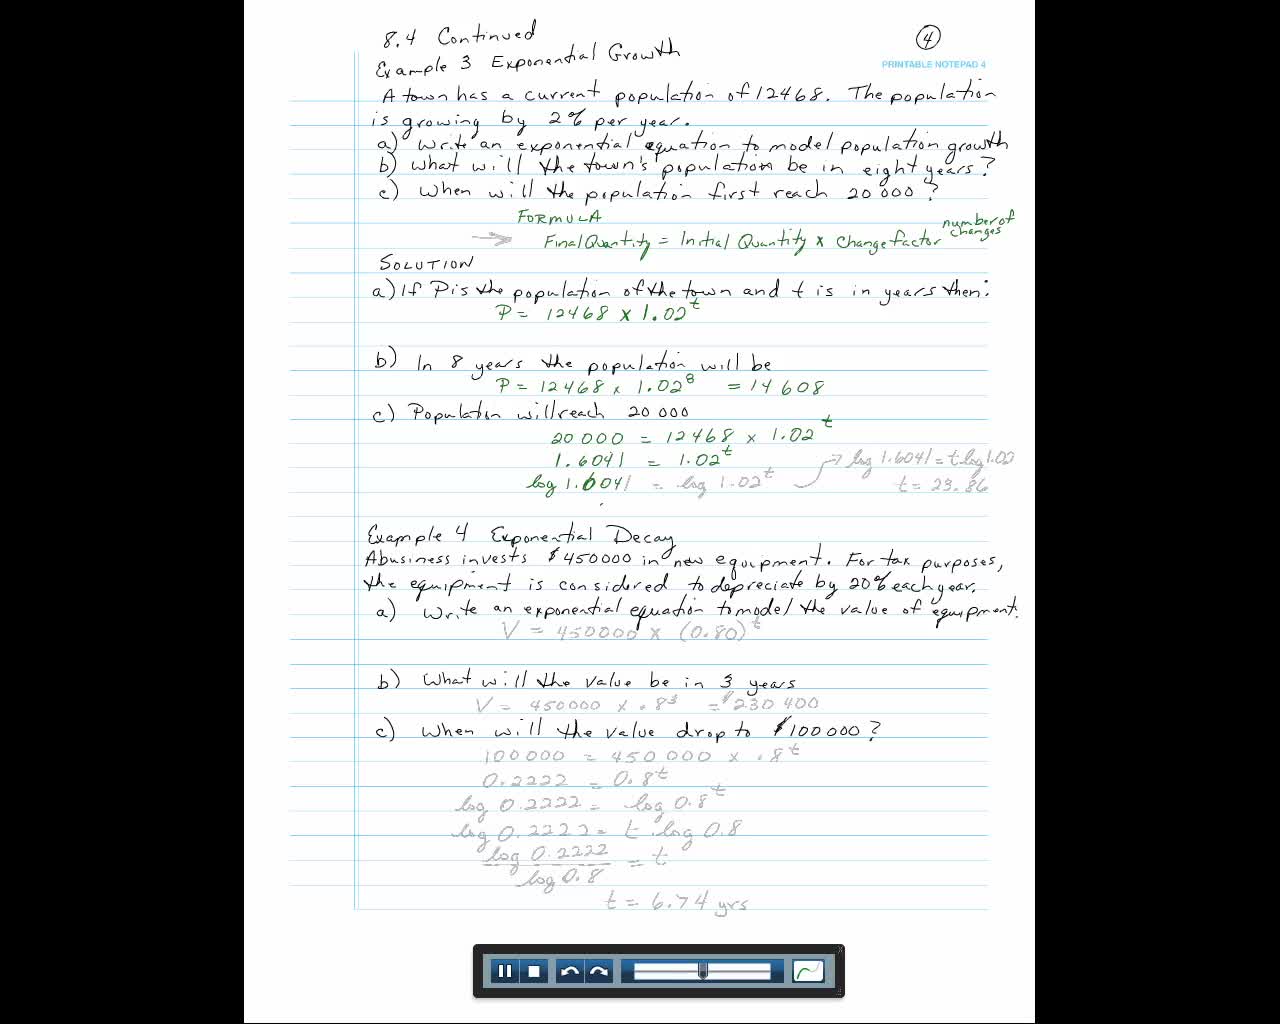 8.4 Continued
4
Example 3 Exponential Growth
PRINTABLE NOTEPAD 4
A town has a current population of 12468. The population
is growing by 2% per year.
a) Write an exponential equation to model population growth
b) What will the town's population be in eight years?
c) When will the population first reach 20 000?
FORMULA
Final Quantity = Initial Quantity × Change factor number of changes
SOLUTION
a) If P is the population of the town and t is in years then:
P = 12468 × 1.02^t
b) In 8 years the population will be
P = 12468 × 1.02^8 = 14 608
c) Population will reach 20 000
20 000 = 12468 × 1.02^t
1.6041 = 1.02^t
log 1.6041 = t log 1.02
log 1.6041 = log 1.02^t
t = 23.86
Example 4 Exponential Decay
A business invests $450000 in new equipment. For tax purposes,
the equipment is considered to depreciate by 20% each year.
a) Write an exponential equation to model the value of equipment.
V = 450000 × (0.80)^t
b) What will the value be in 3 years
V = 450000 × .8^3 = $230 400
c) When will the value drop to $100000?
100 000 = 450 000 × .8^t
0.2222 = 0.8^t
log 0.2222 = log 0.8^t
log 0.2222 = t · log 0.8
log 0.2222 = t
log 0.8
t = 6.74 yrs